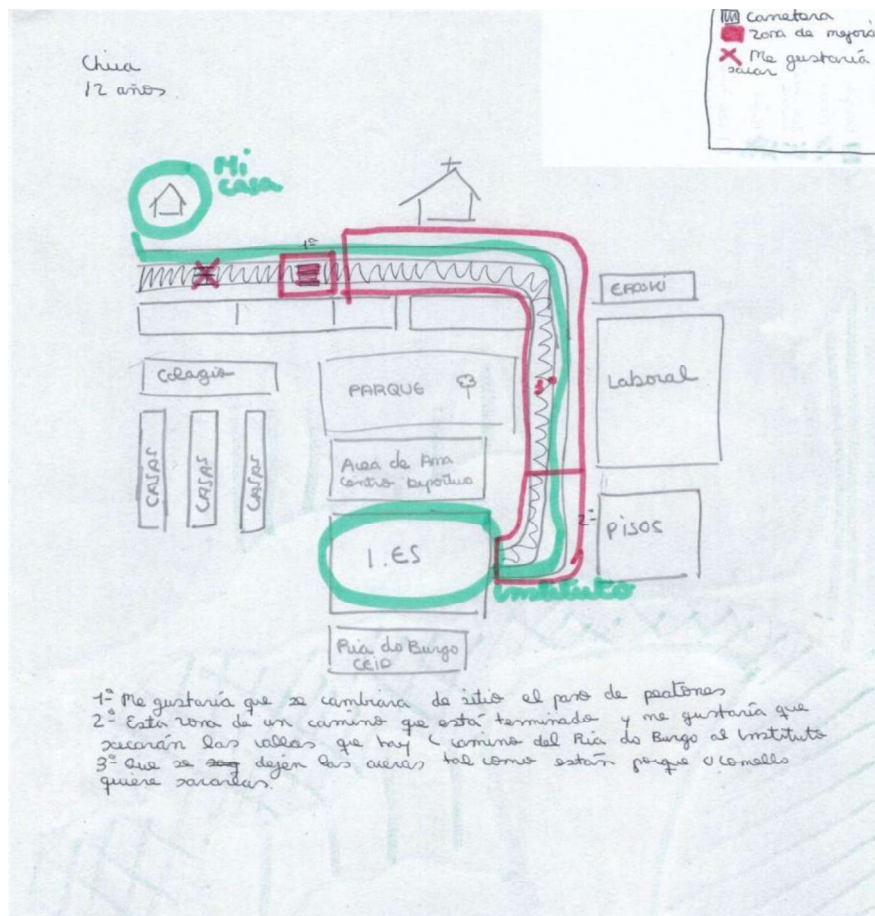 carretera
zona de mejora
Me gustaría
sacar
Chica
12 años
Mi
casa
1ª
EROSKI
Colegio
PARQUE
Laboral
CASAS
CASAS
CASAS
Area de Ama
Centro Deportivo
3ª
2ª
I.ES
PISOS
instituto
Ria do Burgo
CEIP
1ª Me gustaría que se cambiara de sitio el paso de peatones
2ª Esta zona de un camino que está terminado y me gustaría que
sacarán las vallas que hay ( camino del Ria do Burgo al Instituto
3ª Que se dejen las aceras tal como están porque O Comello
quiere sacarlas.